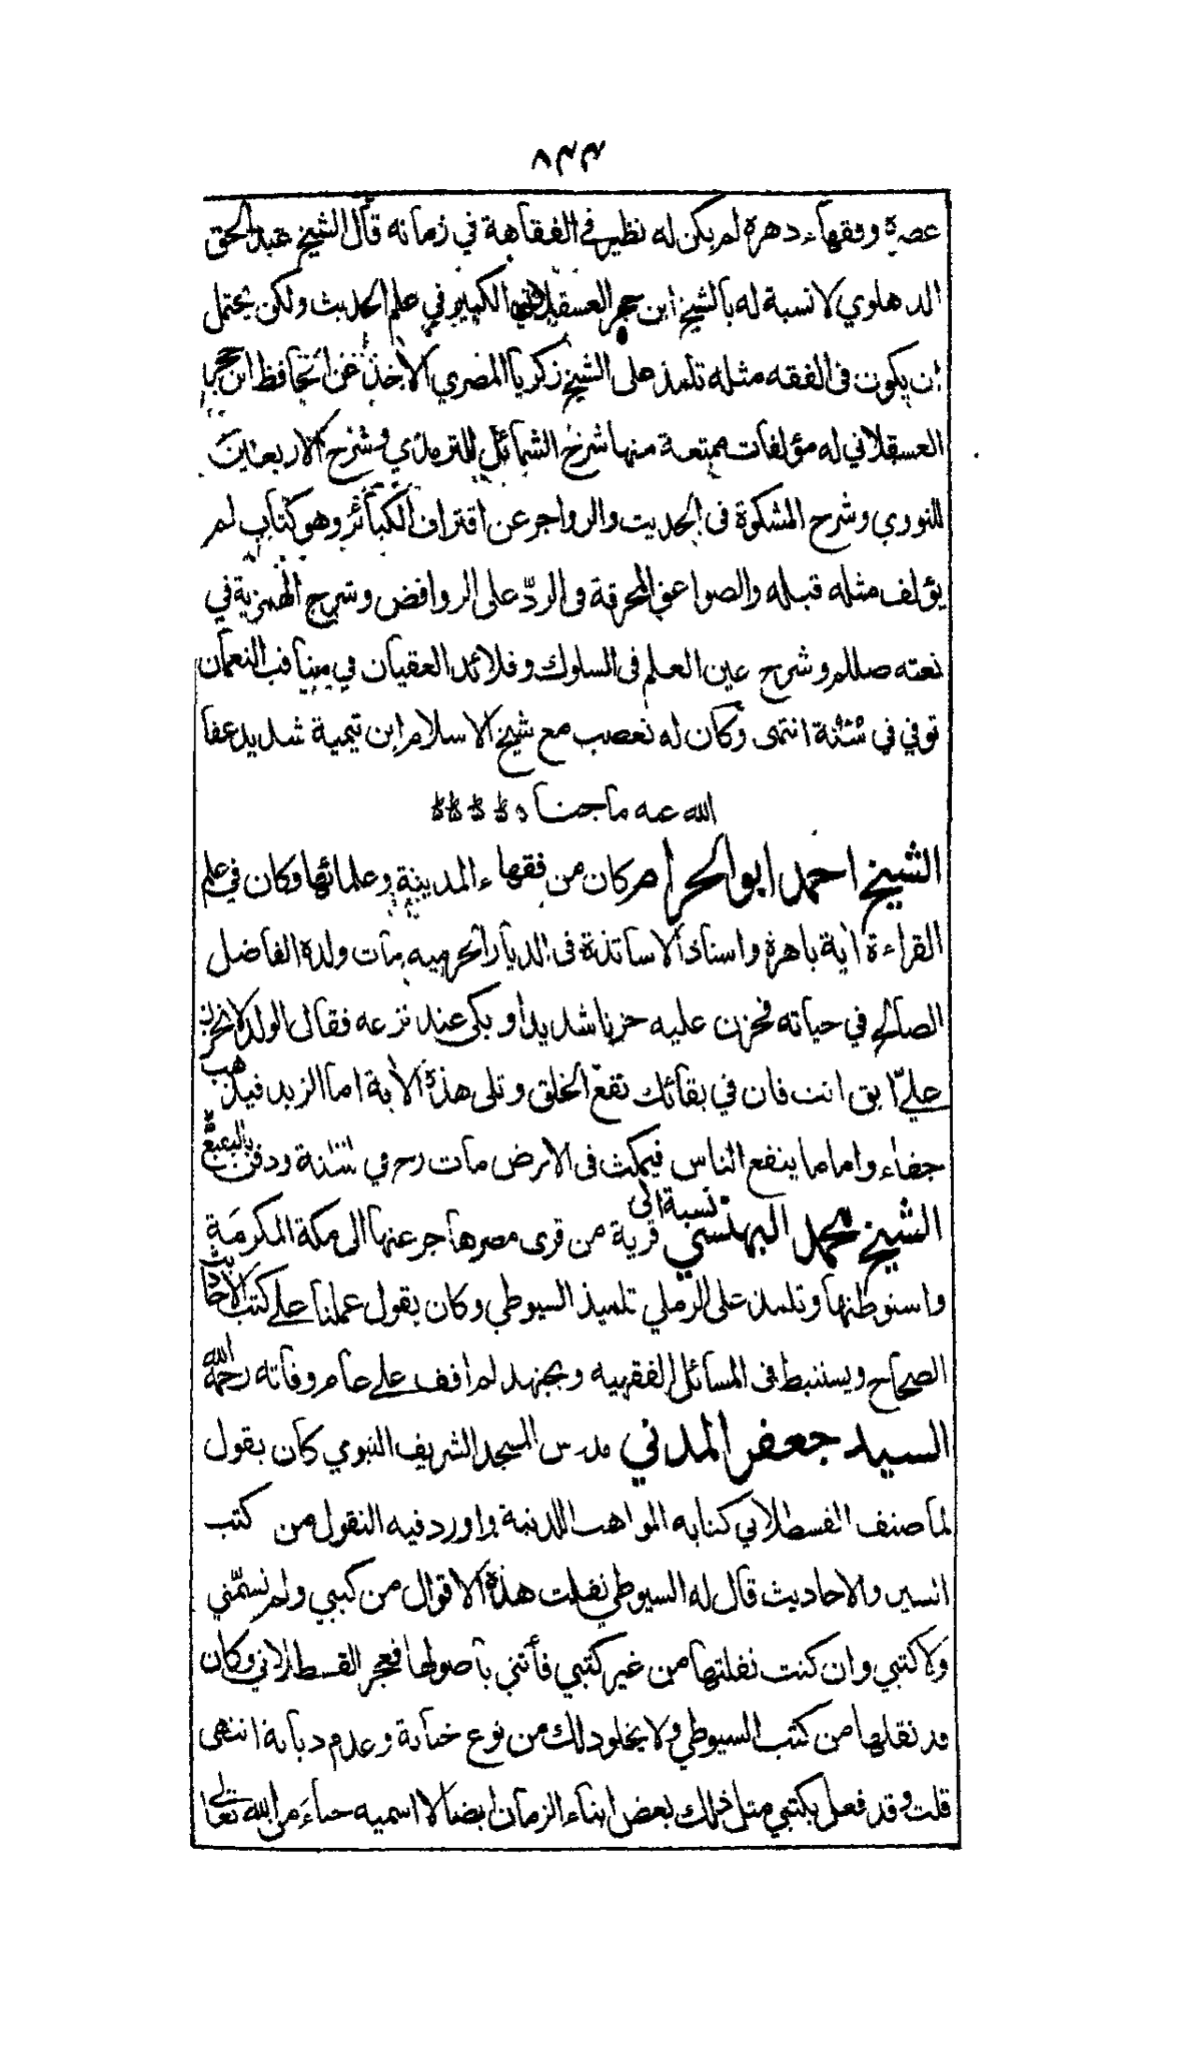 ٨٣٣
عصره وفقهاء دهره لم يكن له نظير في الفقاهة في زمانه قال الشيخ عبد الحق
الدهلوي لا نسبة له بالشيخ ابن حجر العسقلاني الكبير في علم الحديث ولكن يحتمل
ان يكون فى الفقه مثله تلمذ على الشيخ زكريا المصري الأخذ عن الحافظ ابن حجر
العسقلاني له مؤلفات ممتعة منها شرح الشمائل للترمذي وشرح الاربعين
للنووي وشرح المشكوة فى الحديث والزواجر عن اقتراف الكبائر وهو كتاب لم
يؤلف مثله قبله والصواعق المحرقة فى الردّ على الروافض وشرح الهمزية في
نعته صللم وشرح عين العلم فى السلوك وقلائد العقيان في مناقب النعمان
توفي في سنة انتهى وكان له تعصب مع شيخ الاسلام ابن تيمية شديد عفا
الله عنه ما جناه
الشيخ احمد ابو الحرام كان من فقهاء المدينة وعلمائها وكان في علم
القراءة اٰية باهرة واستاذ الاساتذة فى الديار الحرمية مات ولده الفاضل
الصالح في حياته فحزن عليه حزنا شديدا وبكى عند نزعه فقال الولد لا تحزن
عليّ ابق انت فان في بقائك نفع الخلق وتلى هذه الأية اما الزبد فيذهب
جفاء واما ما ينفع الناس فيمكث فى الارض مات رح في سنة ودفن بالبقيع
الشيخ محمد البهنسي نسبة الى قرية من قرى مصر هاجر عنها الى مكة المكرمة
واستوطنها وتلمذ على الرملي تلميذ السيوطي وكان يقول عملنا على كتب الاحاديث
الصحاح ويستنبط فى المسائل الفقهيه ويجتهد لم اقف على عام وفاته رحمه الله
السيد جعفر المدني مدرس المسجد الشريف النبوي كان يقول
لما صنف القسطلاني كتابه المواهب اللدنية واورد فيه النقول من كتب
السير والاحاديث قال له السيوطي نقلت هذه الاقوال من كتبي ولم تسمّني
ولا كتبي وان كنت نقلتها من غير كتبي فأتني باصولها فعجز القسطلاني وكان
قد نقلها من كتب السيوطي ولا يخلو ذلك من نوع خيانة وعدم ديانة انتهى
قلت وقد فعل بكتبي مثل ذلك بعض ابناء الزمان ايضا لا اسميه حياءً من الله تعالى